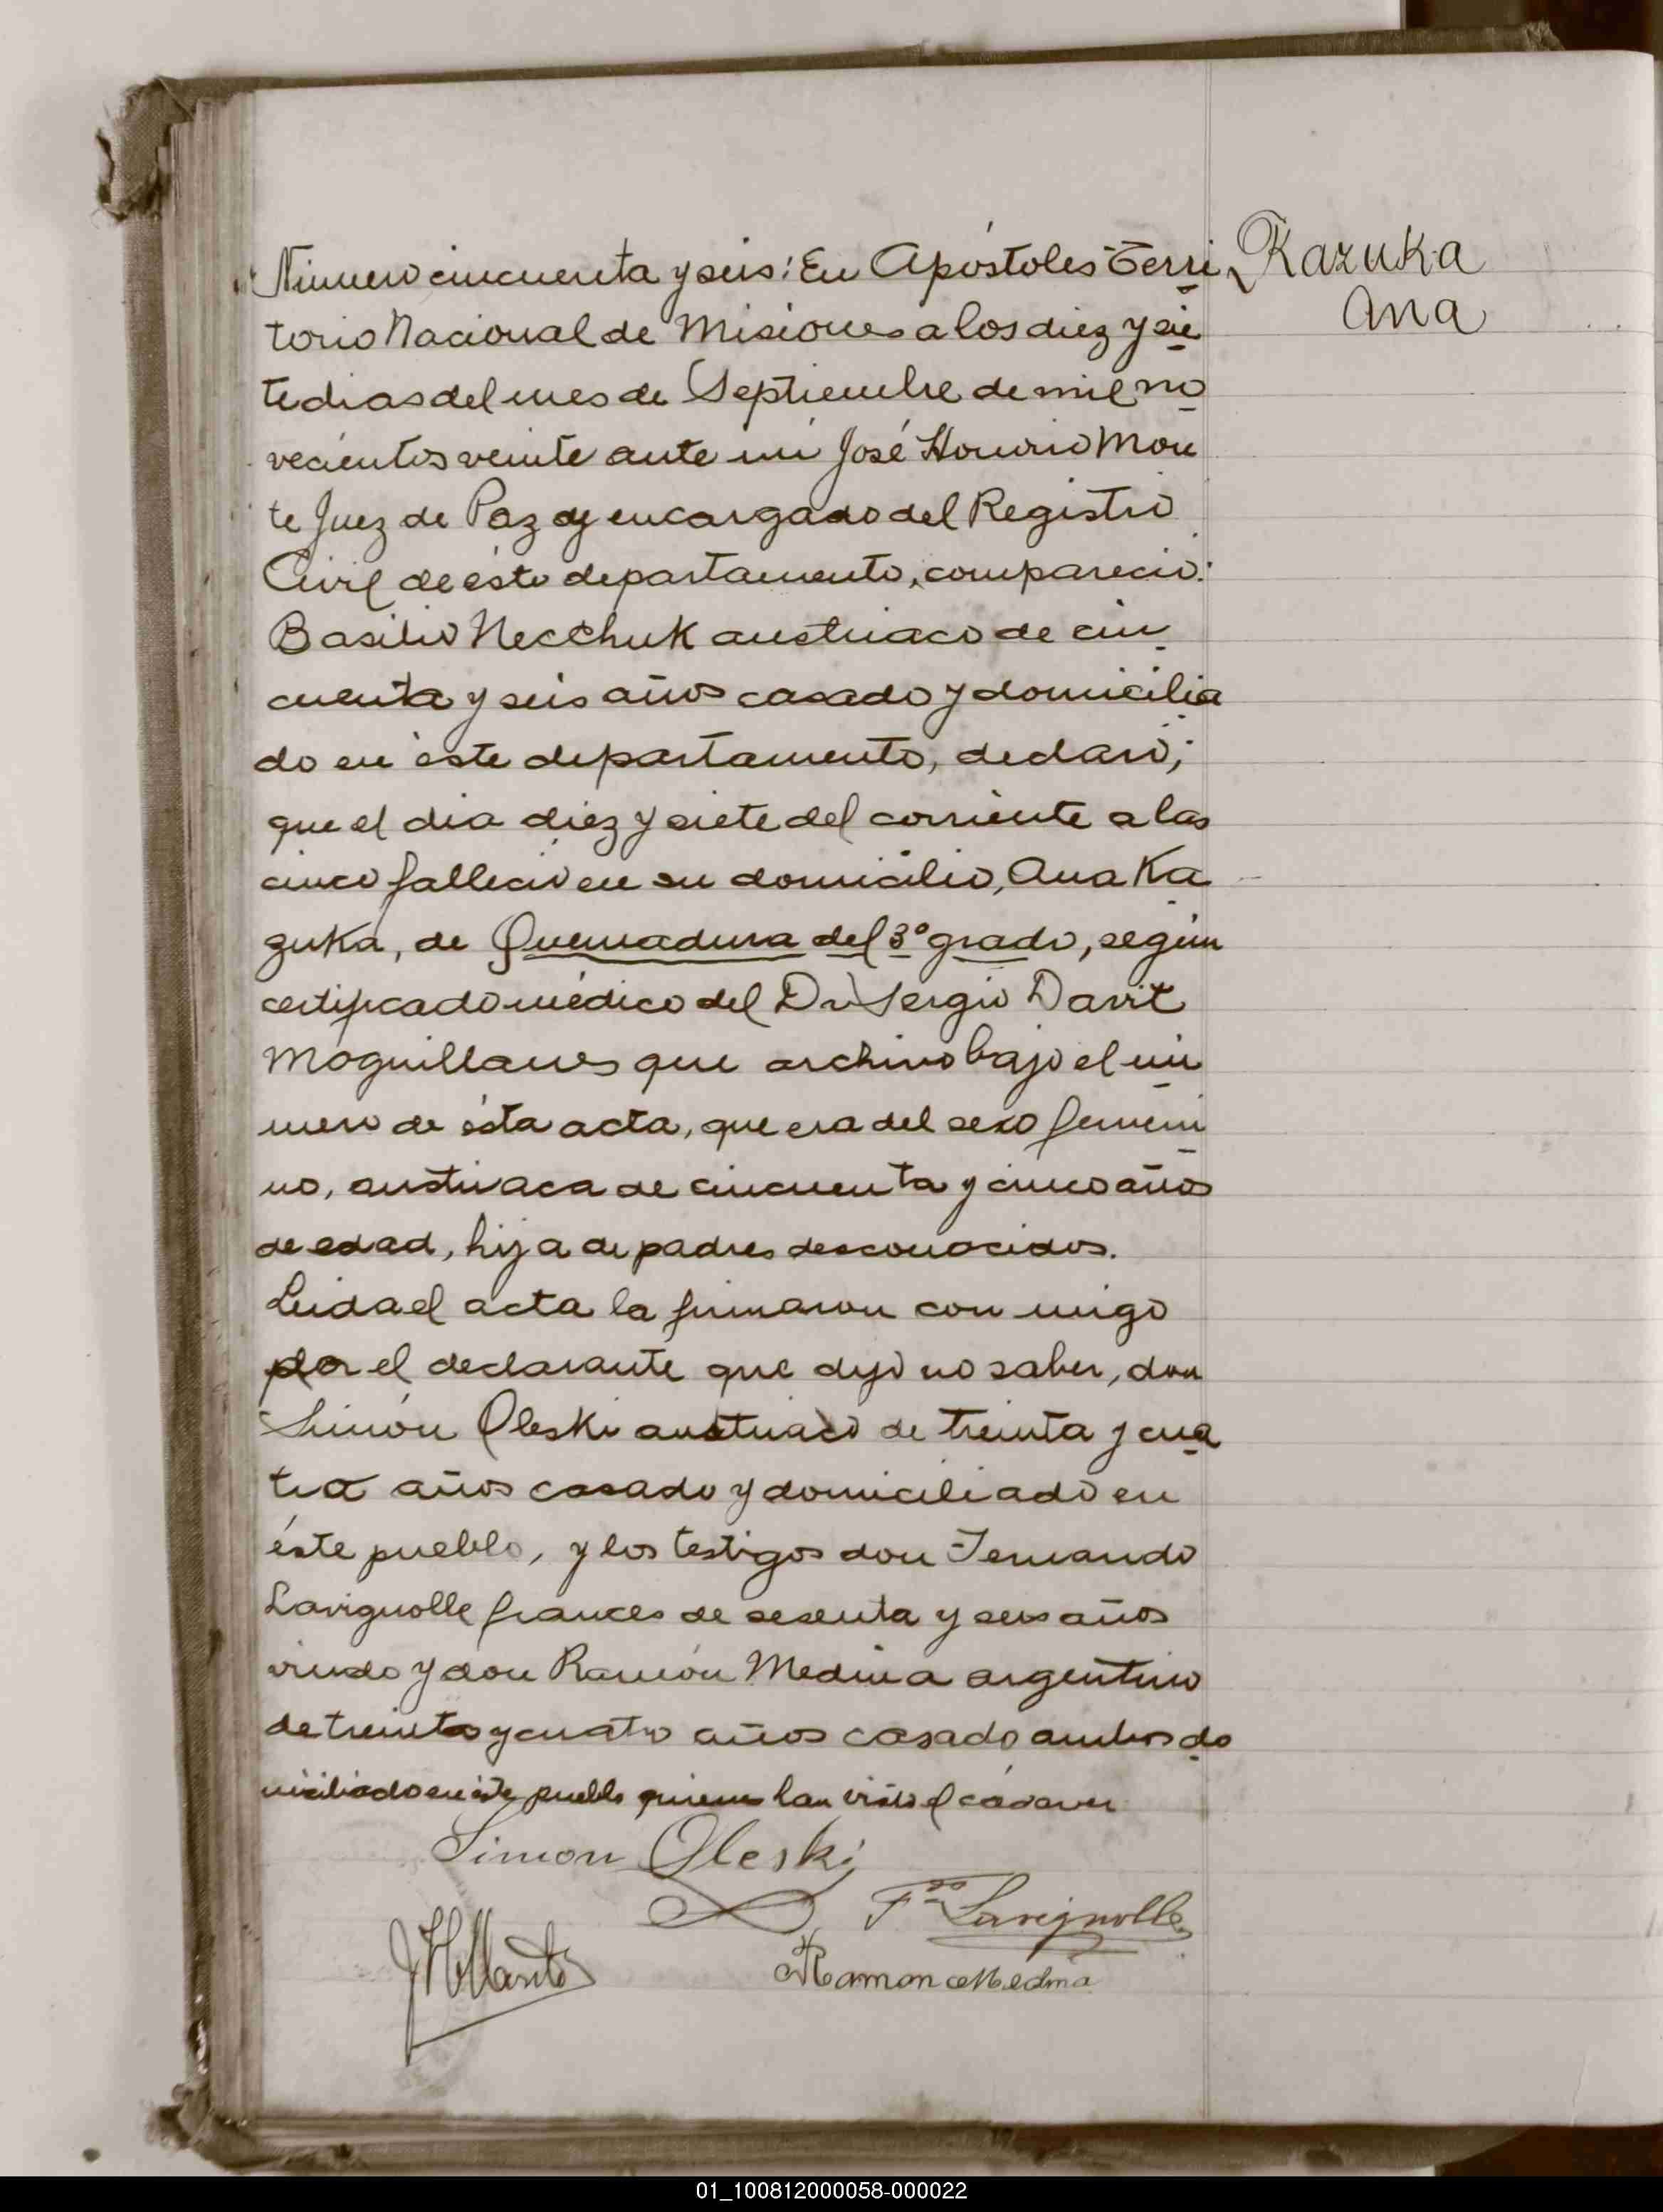 Kazuka
Ana
Número cincuenta y seis: En Apóstoles Terri
torio Nacional de Misiones a los diez y sie
te dias del mes de Septiembre de mil no
vecientos veinte ante mi José Honorio Mon
te Juez de Paz y encargado del Registro
Civil de éste departamento, compareció:
Basilio Necthuk austriaco de cin
cuenta y seis años casado y domicilia
do en éste departamento, declaró;
que el dia diez y siete del corriente a las
cinco falleció en su domicilio, Ana Ka
zuka, de Quemadura del 3º grado, según
certificado médico del Dr Sergio Davit
Moguillanes que archivo bajo el nú
mero de ésta acta, que era del sexo femeni
no, austriaca de cincuenta y cinco años
de edad, hija de padres desconocidos.
Leida el acta la firmaron con migo
por el declarante que dijo no saber, don
Simón Oleski austriaco de treinta y cua
tro años casado y domiciliado en
éste pueblo, y los testigos don Fernando
Lavignolle frances de sesenta y seis años
viudo y don Ramón Medina argentino
de treinta y cuatro años casado ambos do
miciliado en éste pueblo quienes han visto el cadaver
Simon Oleski
Fdo Lavignolle
Ramon Medina
01_100812000058-000022